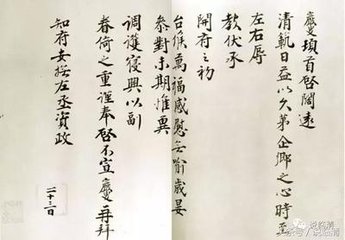 夔頓首啓闊遠
清範日益以久第企鄉之心時至
左右辱
教伏承
開府之初
台候萬福感慰無喻歲晏
參對未期惟冀
調護寢興以副
眷倚之重謹奉啓不宣夔再拜
知府安撫左丞資政
二十三日